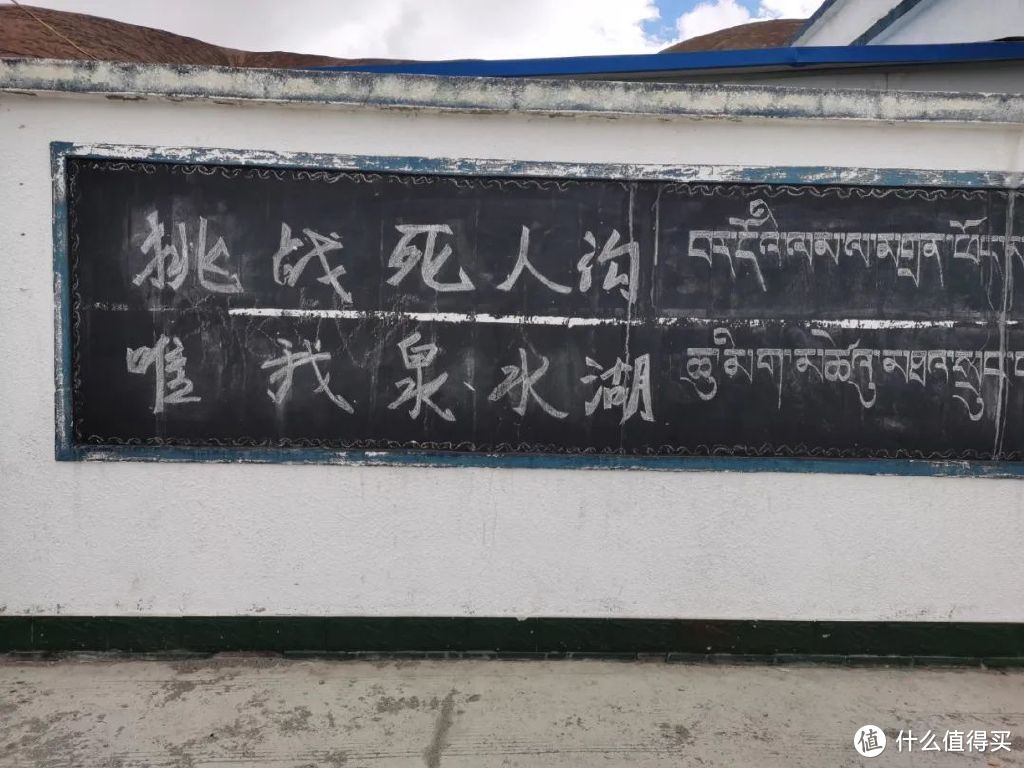 挑战死人沟
唯我泉水湖
ཆུ་མིག་མཚོའུ་མཐའ་སྲུང་
值 什么值得买